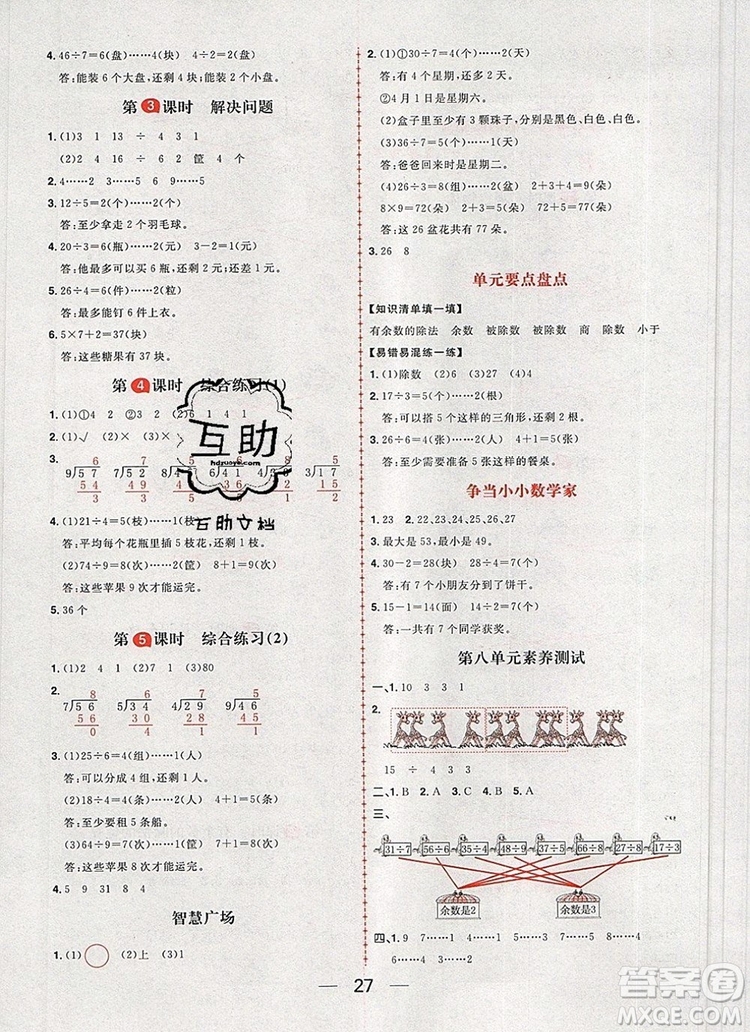 4. 46÷7=6(盘)……4(块) 4÷2=2(盘)
答:能装6个大盘,还剩4块;能装2个小盘。
第3课时 解决问题
1. (1)3 1 13 ÷ 4 3 1
(2)2 4 16 ÷ 6 2 筐 4 个
2. 4……2 5……5 6 9
3. 12÷5=2(个)……2(个)
答:至少拿走2个羽毛球。
4. 20÷3=6(瓶)……2(元) 3-2=1(元)
答:最多可以买6瓶,还剩2元;还差1元。
5. 26÷4=6(件)……2(个)
答:最多能钉6件上衣。
6. 5×7+2=37(块)
答:这些糖果有37块。
第4课时 综合练习(1)
1. (1)①4 2 ②3 2 (2)6 1 4 1
2. (1)√ (2)× (3)×
3.
4. (1)21÷4=5(枝)……1(枝)
答:平均每个花瓶里插5枝花,还剩1枝。
(2)74÷9=8(次)……2(筐) 8+1=9(次)
答:这些苹果9次才能运完。
5. 36个
第5课时 综合练习(2)
1. (1)2 4 1 (2)7 (3)80
2.
3. (1)25÷6=4(组)……1(人)
答:可以分成4组,还剩1人。
(2)18÷4=4(条)……2(人) 4+1=5(条)
答:至少要租5条船。
(3)64÷9=7(次)……1(筐) 7+1=8(次)
答:这些苹果8次才能运完。
4. 5 9 31 8 4
智慧广场
1. (1) (2)上 (3)1
2. (1)①30÷7=4(个)……2(天)
答:有4个星期,还剩2天。
②4月1日是星期六。
(2)盒子里至少有3颗珠子,分别是黑色、白色、白色。
(3)36÷7=5(个)……1(天)
答:爸爸回来时是星期二。
(4)26÷3=8(组)……2(盆) 2+3+4=9(朵)
8×9=72(朵) 72+2+3=77(朵)
答:这26盆花共有77朵。
3. 26 8
单元要点盘点
【知识清单填一填】
有余数的除法 余数 被除数 被除数 商 除数 小于
【易错易混练一练】
1. (1)除数 (2)6 (3)27 (4)4
2. 17÷3=5(个)……2(根)
答:可以搭5个这样的三角形,还剩2根。
3. 26÷6=4(张)……2(人) 4+1=5(张)
答:至少需要准备5张这样的餐桌。
争当小小数学家
1. 23 2. 22、23、24、25、26、27
3. 最大是53,最小是49。
4. 30-2=28(块) 28÷4=7(个)
答:有7个小朋友分到了饼干。
5. 15-1=14(面) 14÷2=7(个)
答:一共有7个同学获奖。
第八单元素养测试
一、1. 10 3 3 1
2.
15 ÷ 4 3 3
二、1. B 2. A 3. C 4. B 5. A
三、
31÷7 56÷6 35÷4 47÷5 57÷8 66÷8 27÷8 17÷3
余数是2 余数是3
四、1. 9 7……1 4……1 5……5
6……2 5……4
27
互助
互助文档
答案圈
MXQE.COM